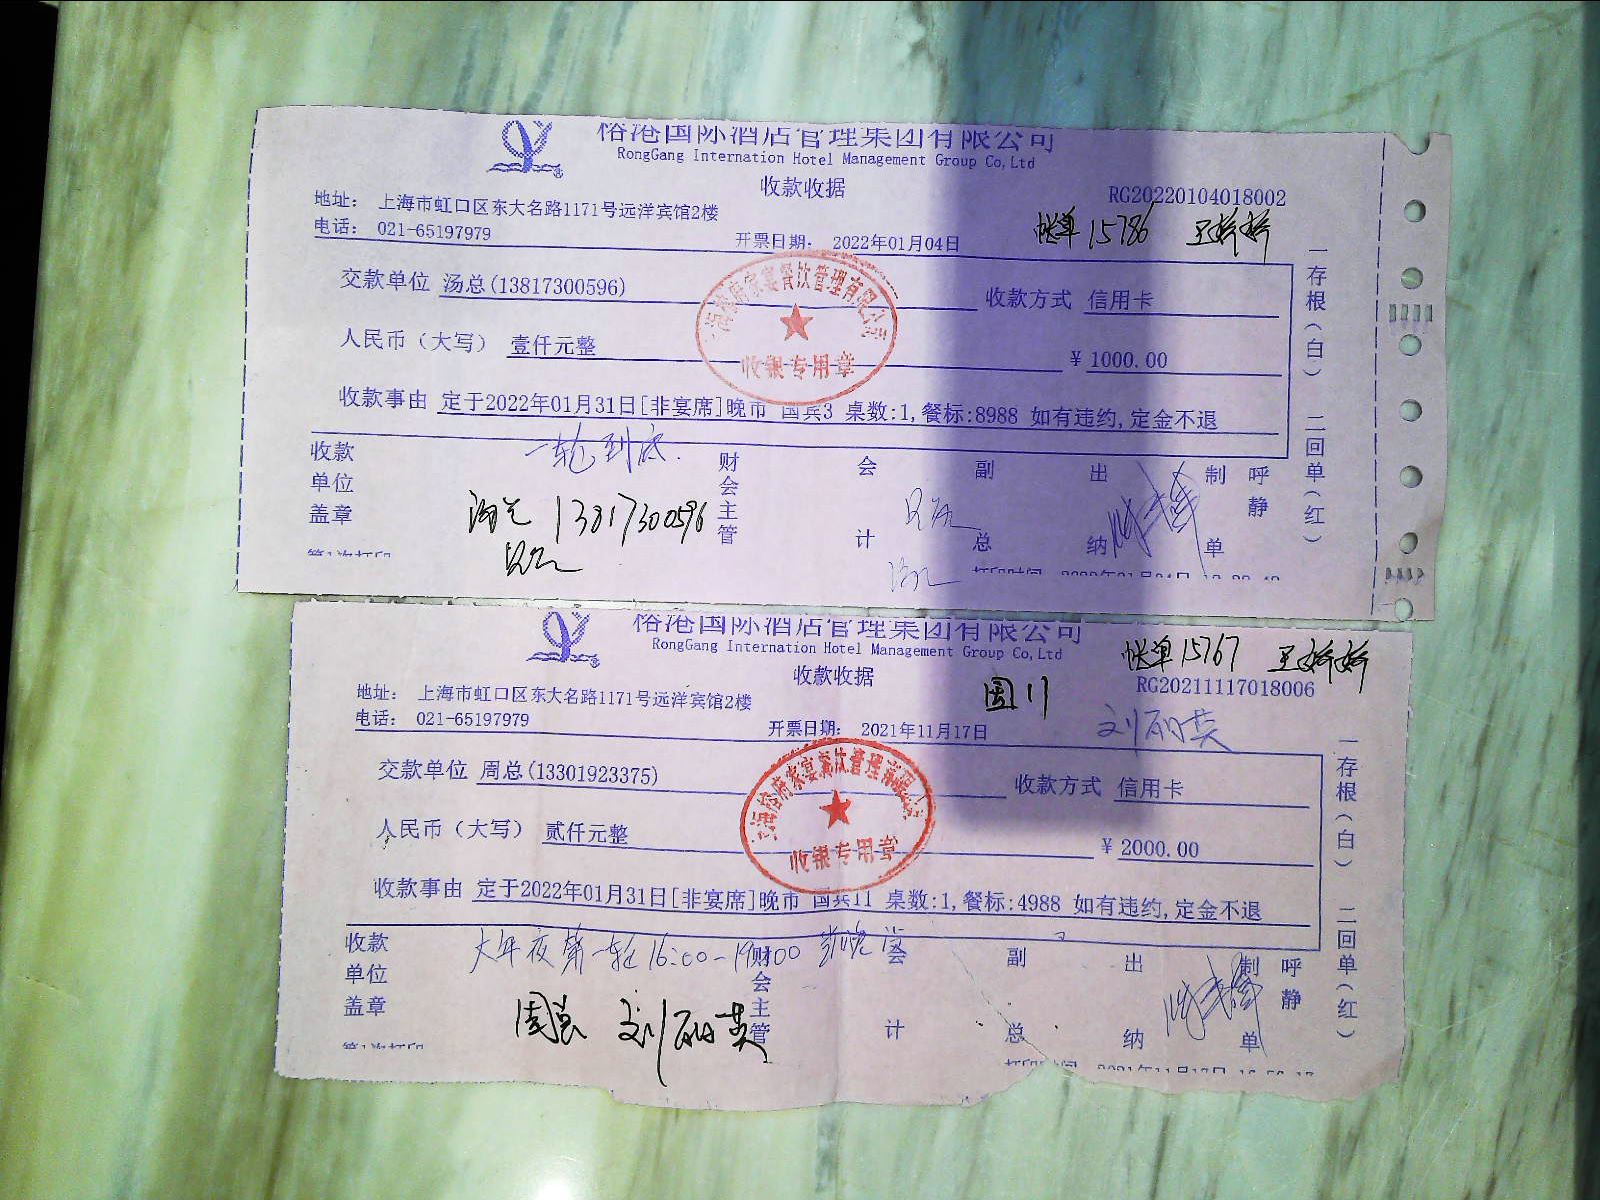 榕港国际酒店管理集团有限公司
RongGang Internation Hotel Management Group Co,Ltd
收款收据
RG20220104018002
地址： 上海市虹口区东大名路1171号远洋宾馆2楼
电话： 021-65197979
开票日期： 2022年01月04日
帐单15786 王娇娇
交款单位 汤总(13817300596)
收款方式 信用卡
人民币（大写） 壹仟元整
¥ 1000.00
海榕府家宴餐饮管理有限公司
收银专用章
收款事由 定于2022年01月31日[非宴席]晚市 国宾3 桌数:1,餐标:8988 如有违约,定金不退
一轮到底.
收款单位盖章
13817300596
财会主管
会计
副总
出纳
制单
呼静
一存根(白) 二回单(红)
第1次打印
榕港国际酒店管理集团有限公司
RongGang Internation Hotel Management Group Co,Ltd
帐单15767 王娇娇
收款收据
RG20211117018006
地址： 上海市虹口区东大名路1171号远洋宾馆2楼
电话： 021-65197979
开票日期： 2021年11月17日
国11
刘丽英
交款单位 周总(13301923375)
收款方式 信用卡
人民币（大写） 贰仟元整
¥ 2000.00
上海榕府家宴餐饮管理有限公司
收银专用章
收款事由 定于2022年01月31日[非宴席]晚市 国宾11 桌数:1,餐标:4988 如有违约,定金不退
大年夜第一轮16:00-19:00
收款单位盖章
周总 刘丽英
财会主管
会计
副总
出纳
制单
呼静
一存根(白) 二回单(红)
第1次打印